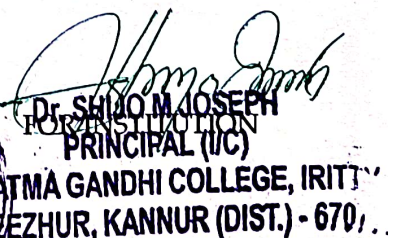 Dr. SHIJO M JOSEPH
FOR INSTITUTION
PRINCIPAL (I/C)
ATMA GANDHI COLLEGE, IRITT
EZHUR, KANNUR (DIST.) - 670